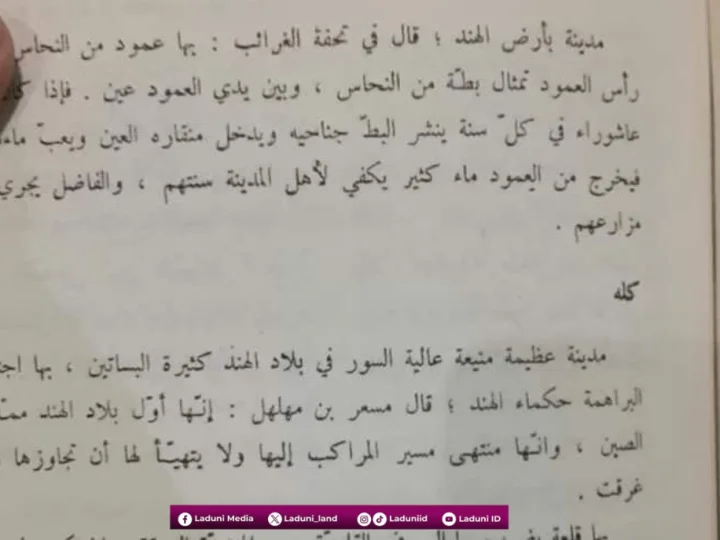 مدينة بأرض الهند ؛ قال في تحفة الغرائب : بها عمود من النحاس
رأس العمود تمثال بطّة من النحاس ، وبين يدي العمود عين . فإذا
عاشوراء في كلّ سنة ينشر البطّ جناحيه ويدخل منقاره العين ويعبّ
فيخرج من العمود ماء كثير يكفي لأهل المدينة سنتهم ، والفاضل يجري
مزارعهم .
كله
مدينة عظيمة منيعة عالية السور في بلاد الهند كثيرة البساتين ، بها
البراهمة حكماء الهند ؛ قال مسعر بن مهلهل : إنّها أوّل بلاد الهند
الصين ، وانّها منتهى مسير المراكب إليها ولا يتهيّأ لها أن تجاوزها
غرقت .
Laduni Media Laduni_land Laduniid Laduni ID